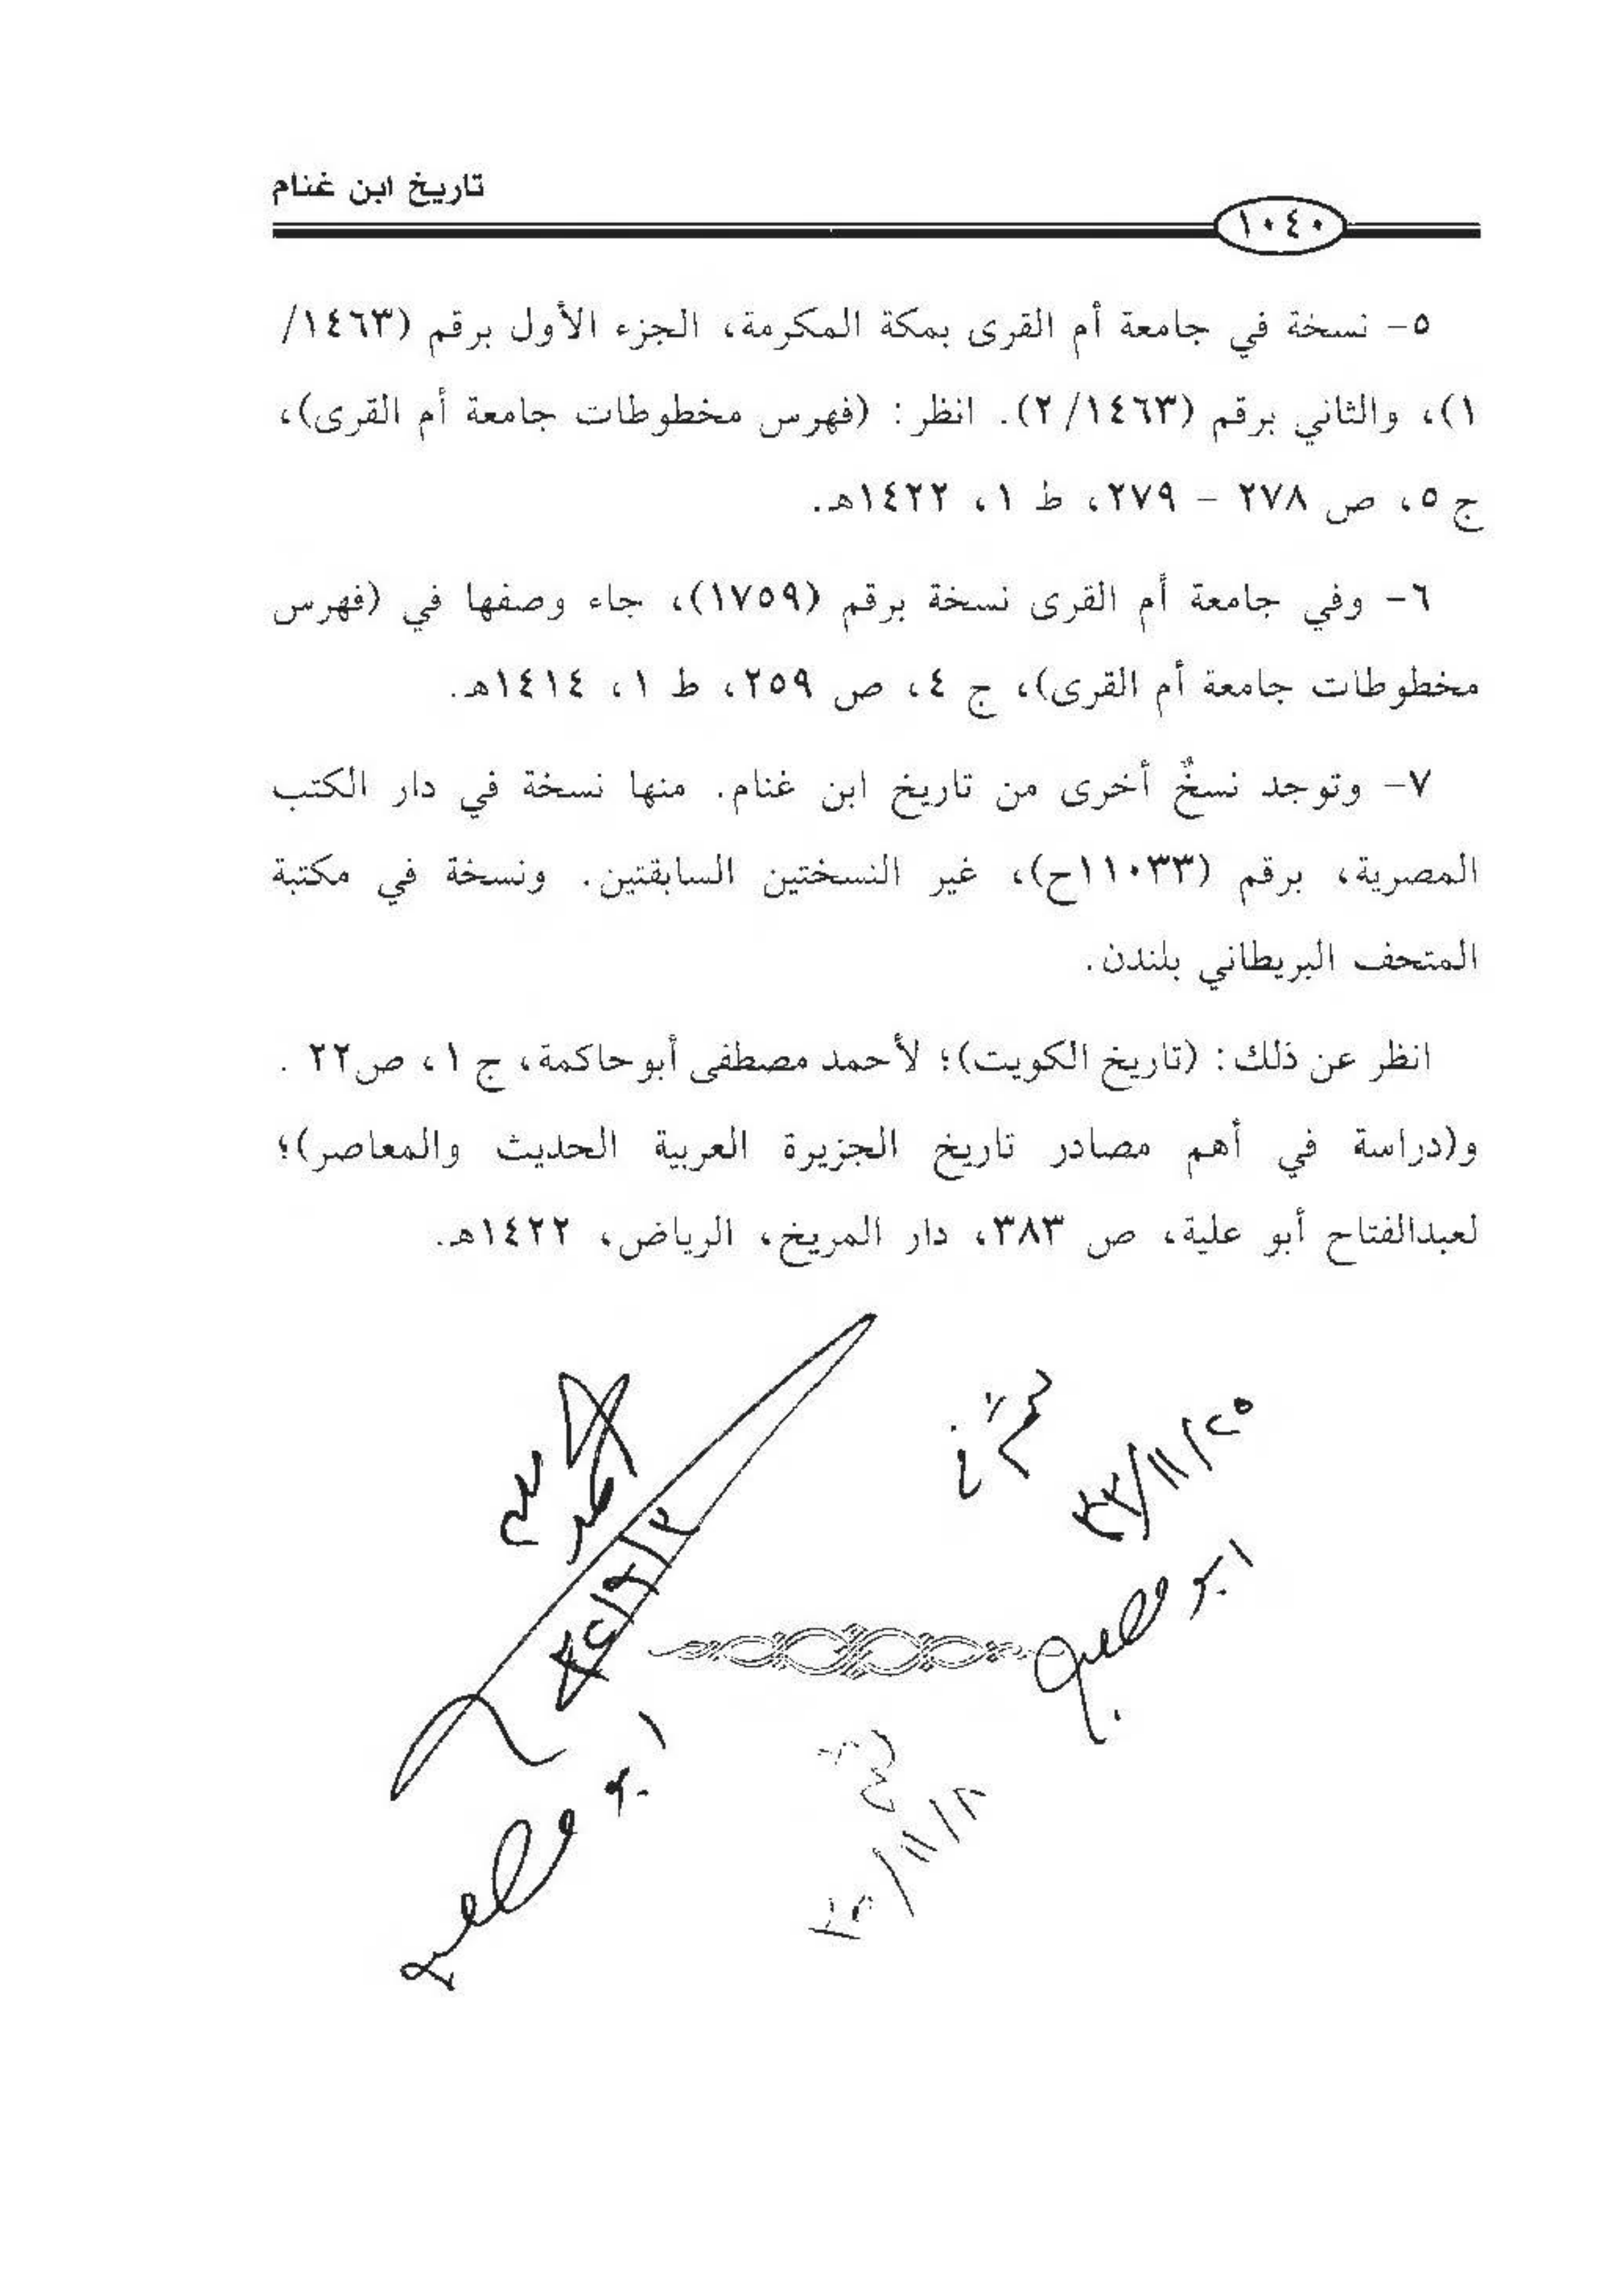 تاريخ ابن غنام
١٠٤٠
٥- نسخة في جامعة أم القرى بمكة المكرمة، الجزء الأول برقم (١٤٦٣/
١)، والثاني برقم (١٤٦٣/ ٢). انظر: (فهرس مخطوطات جامعة أم القرى)،
ج ٥، ص ٢٧٨ - ٢٧٩، ط ١، ١٤٢٢هـ.
٦- وفي جامعة أم القرى نسخة برقم (١٧٥٩)، جاء وصفها في (فهرس
مخطوطات جامعة أم القرى)، ج ٤، ص ٢٥٩، ط ١، ١٤١٤هـ.
٧- وتوجد نسخٌ أخرى من تاريخ ابن غنام. منها نسخة في دار الكتب
المصرية، برقم (١١٠٣٣ح)، غير النسختين السابقتين. ونسخة في مكتبة
المتحف البريطاني بلندن.
انظر عن ذلك: (تاريخ الكويت)؛ لأحمد مصطفى أبوحاكمة، ج ١، ص٢٢ .
و(دراسة في أهم مصادر تاريخ الجزيرة العربية الحديث والمعاصر)؛
لعبدالفتاح أبو علية، ص ٣٨٣، دار المريخ، الرياض، ١٤٢٢هـ.